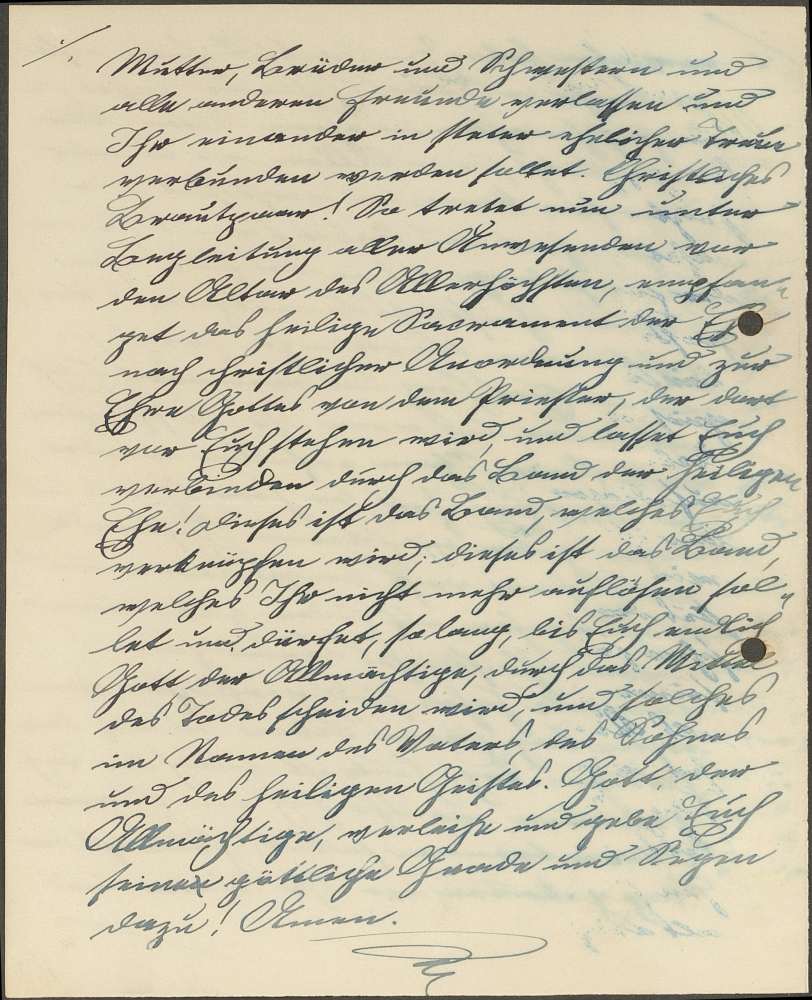 ./.
Mutter, Brüder und Schwestern und
alle anderen Freunde verlassen und
Ihr einander in steter ehelicher Treue
verbunden werden sollet. Christliches
Brautpaar! So tretet nun unter
Begleitung aller Anwesenden vor
den Altar des Allerhöchsten, empfan-
get das heilige Sacrament der Eh
nach christlicher Anordnung und zur
Ehre Gottes von dem Priester, der dort
vor Euch stehen wird, und lasset Euch
verbinden durch das Band der heiligen
Ehe! Dieses ist das Band, welches Euch
verknüpfen wird; dieses ist das Band,
welches Ihr nicht mehr auflösen sol-
let und dürfet, so lang, bis Euch endlich
Gott, der Allmächtige, durch das Mittel
des Todes scheiden wird, und solches
im Namen des Vaters, des Sohnes
und des heiligen Geistes. Gott, der
Allmächtige, verleihe und gebe Euch
seine göttliche Gnade und Segen
dazu! Amen.